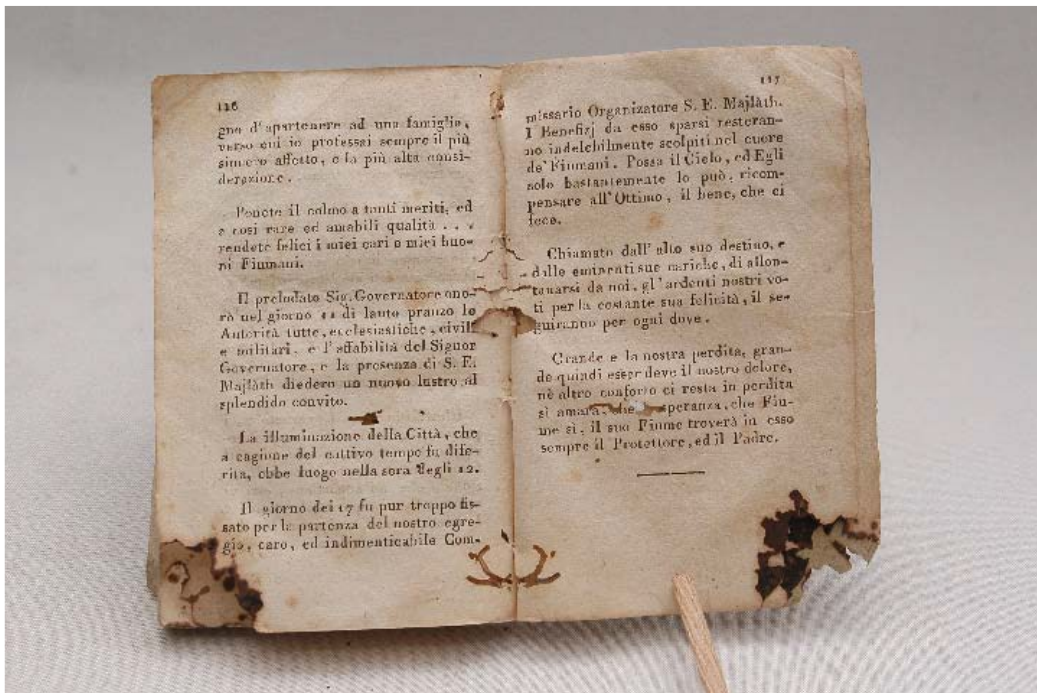 126
gno d'apartenere ad una famiglia,
verso cui io professai sempre il più
sincero affetto, e la più alta consi-
derazione.
Ponete il colmo a tanti meriti, ed
a così rare ed amabili qualità . . .
rendete felici i miei cari e miei buo-
ni Fiumani.
Il prelodato Sig. Governatore ono-
rò nel giorno 12 di lauto pranzo le
Autorità tutte, ecclesiastiche, civili
e militari, e l'affabilità del Signor
Governatore, e la presenza di S. E.
Majlàth diedero un nuovo lustro al
splendido convito.
La illuminazione della Città, che
a cagione del cattivo tempo fu dife-
rita, ebbe luogo nella sera degli 12.
Il giorno dei 17 fu pur troppo fis-
sato per la partenza del nostro egre-
gio, caro, ed indimenticabile Com-
127
missario Organizatore S. E. Majlàth.
I Benefizj da esso sparsi resteran-
no indelebilmente scolpiti nel cuore
de' Fiumani. Possa il Cielo, ed Egli
solo bastantemente lo può, ricom-
pensare all'Ottimo, il bene, che ci
fece.
Chiamato dall'alto suo destino, e
dalle eminenti sue cariche, di allon-
tanarsi da noi, gl'ardenti nostri vo-
ti per la costante sua felicità, il se-
guiranno per ogni dove.
Grande e la nostra perdita, gran-
de quindi esser deve il nostro dolore,
nè altro conforto ci resta in perdita
sì amara, che speranza, che Fiu-
me sì, il suo Fiume troverà in esso
sempre il Protettore, ed il Padre.